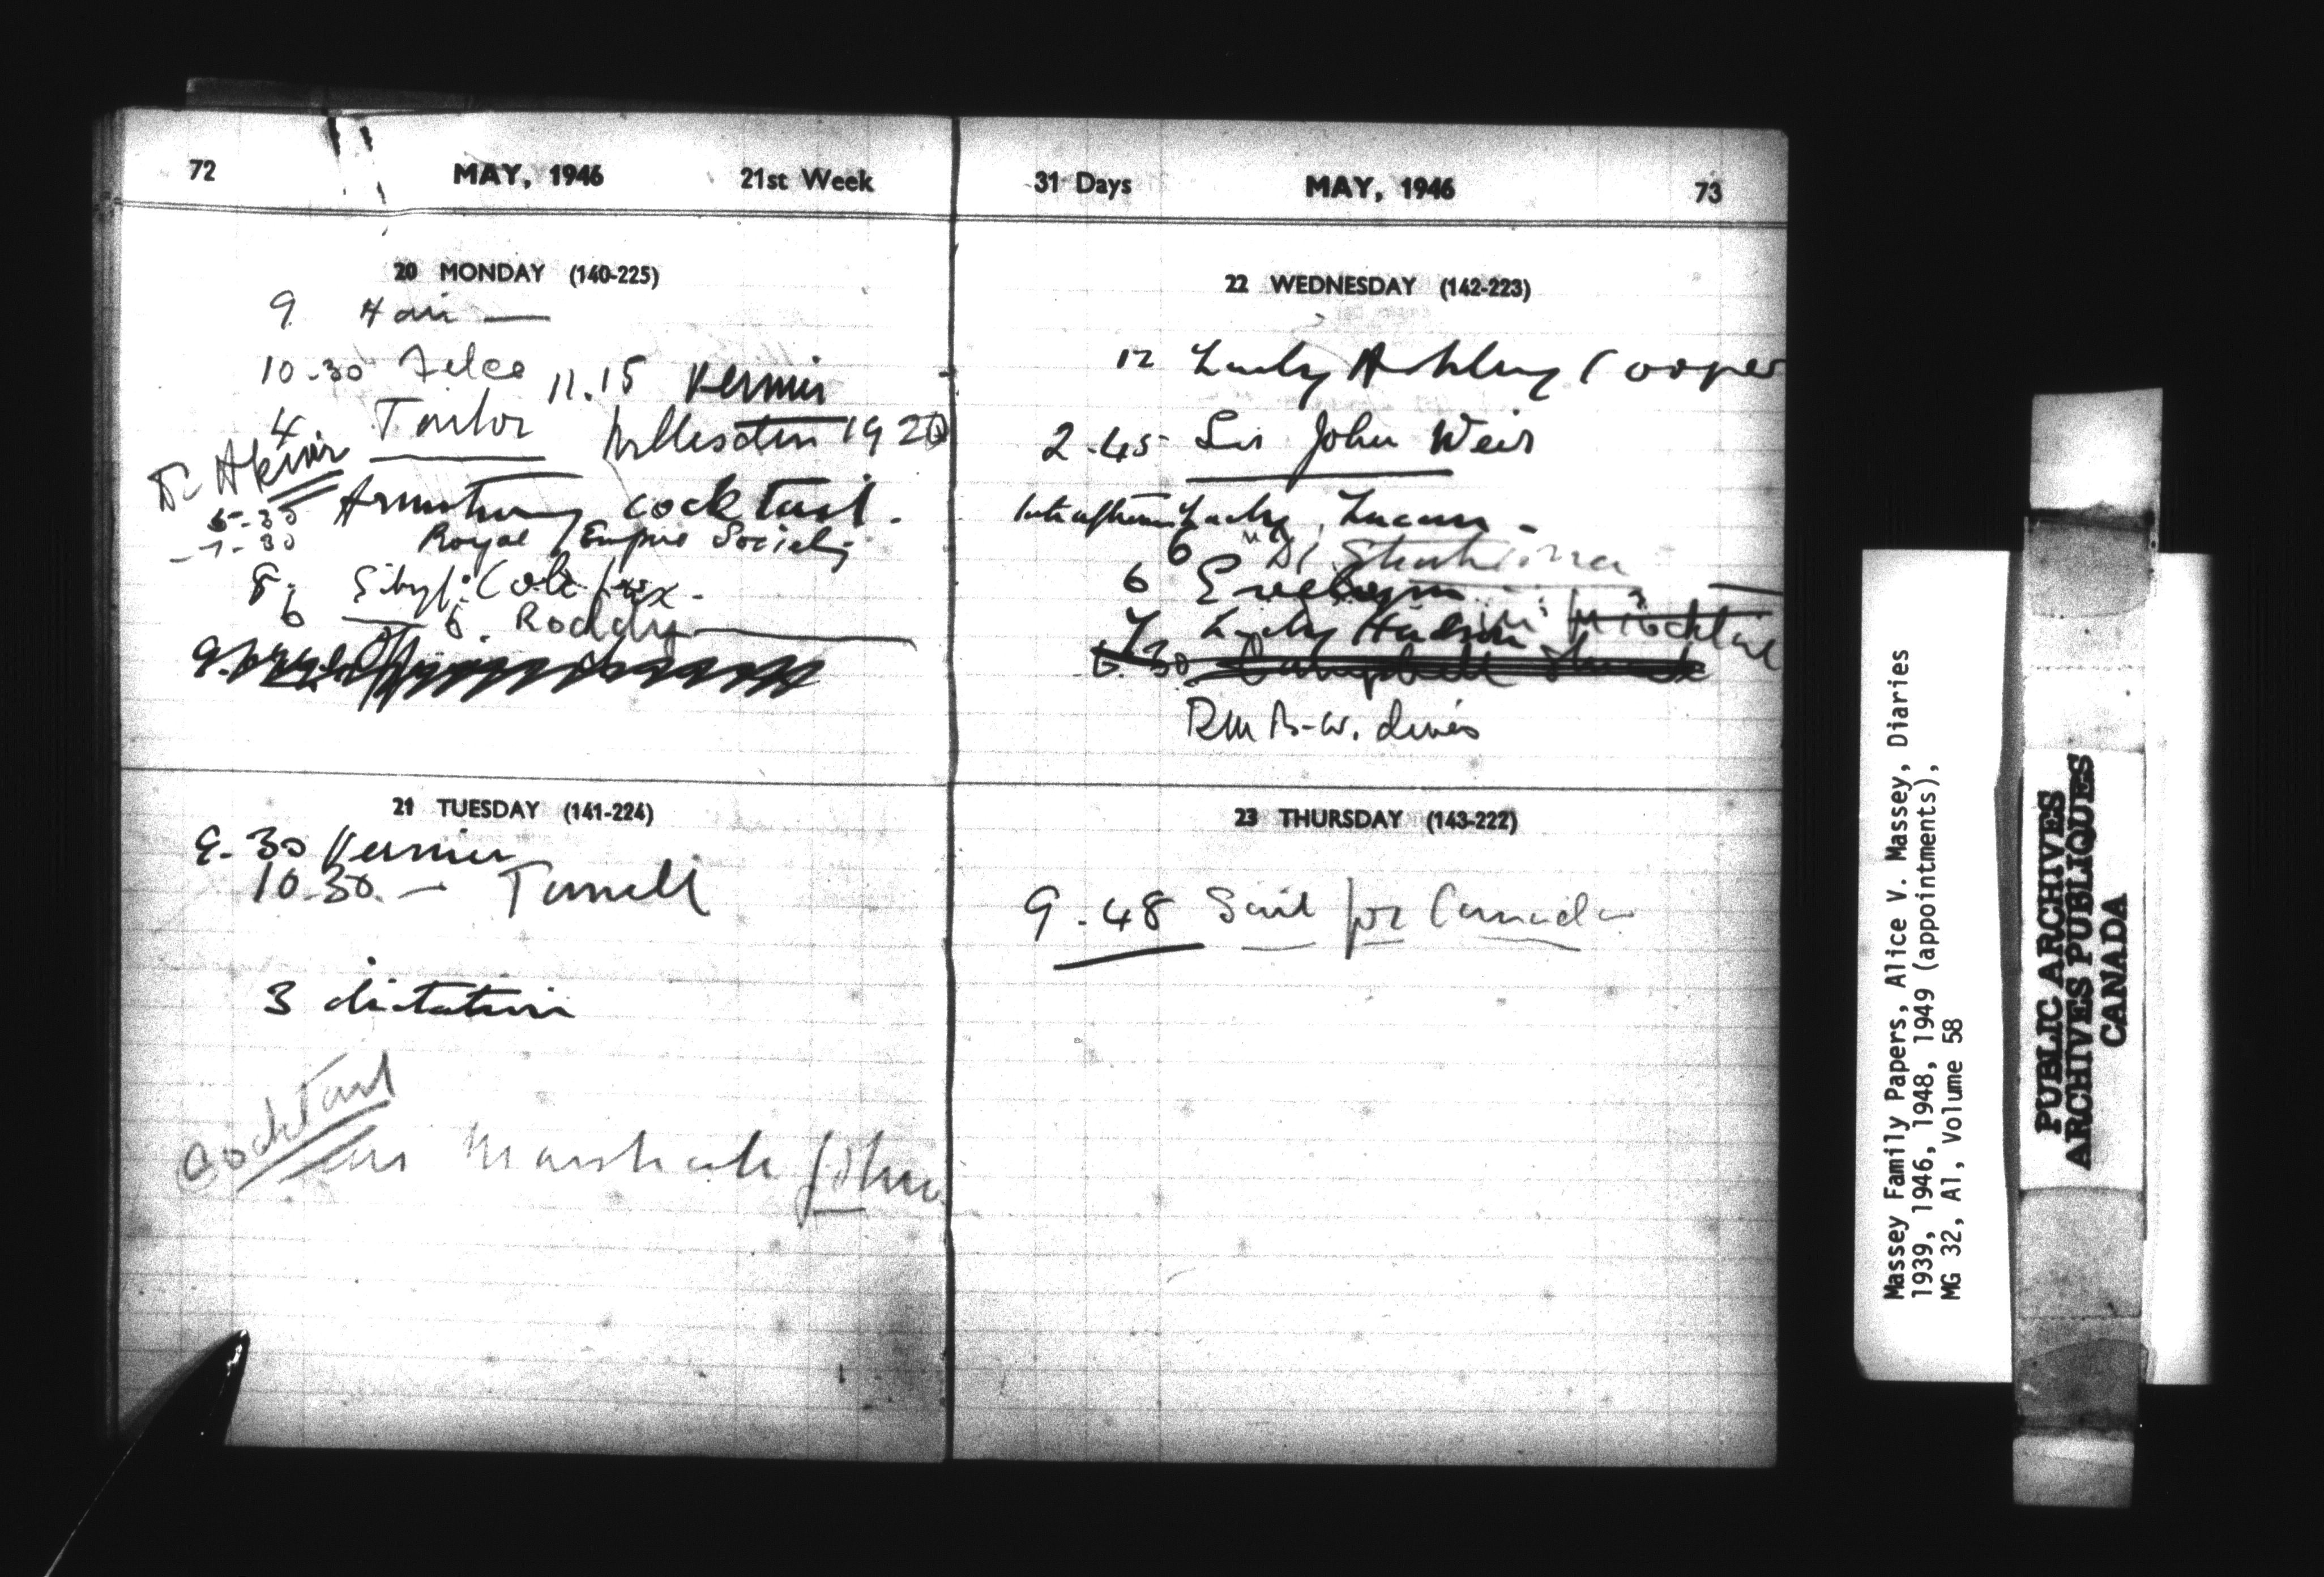 72 MAY, 1946 21st Week
20 MONDAY (140-225)
9 Hair —
10-30 11.15 Vernier
4 Tailor Willesden 19 20
5-30 Armstrong cocktail.
-7-30 Royal Empire Society
8. Sibyl Colefax.
6 6. Roddy
21 TUESDAY (141-224)
9.30 Vernier
10.30. —
3 dictation
Cocktail
Marshall John
31 Days MAY, 1946 73
22 WEDNESDAY (142-223)
12 Lady Ashley Cooper
2-45 Sir John Weir
Lady Lucan -
6 Dr
6 Evelyn
7 Lady Hudson cocktail
6.30 Campbell
23 THURSDAY (143-222)
9.48 Sail for Canada
Massey Family Papers, Alice V. Massey, Diaries
1939, 1946, 1948, 1949 (appointments),
MG 32, A1, Volume 58
PUBLIC ARCHIVES
ARCHIVES PUBLIQUES
CANADA